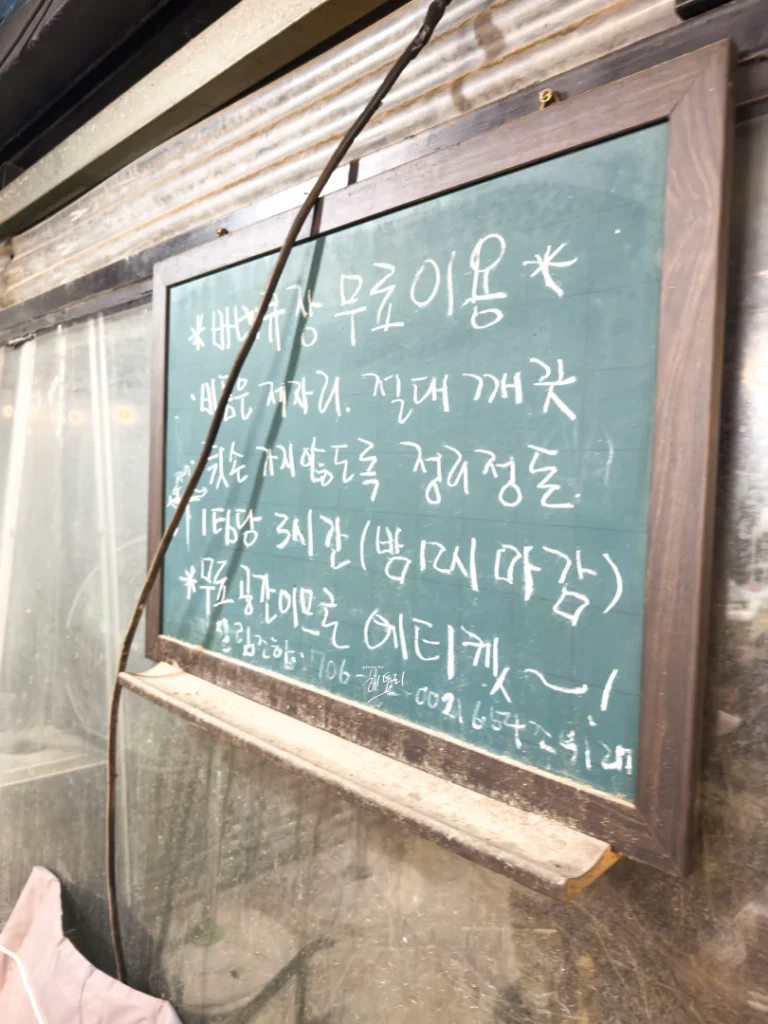 *바베큐장 무료이용*
·비품은 제자리. 절대 깨끗
·뒷손 가지않도록 정리정돈.
1팀당 3시간(밤12시 마감)
*무료공간이므로 에티켓~!
산림조합:706-
-0021654